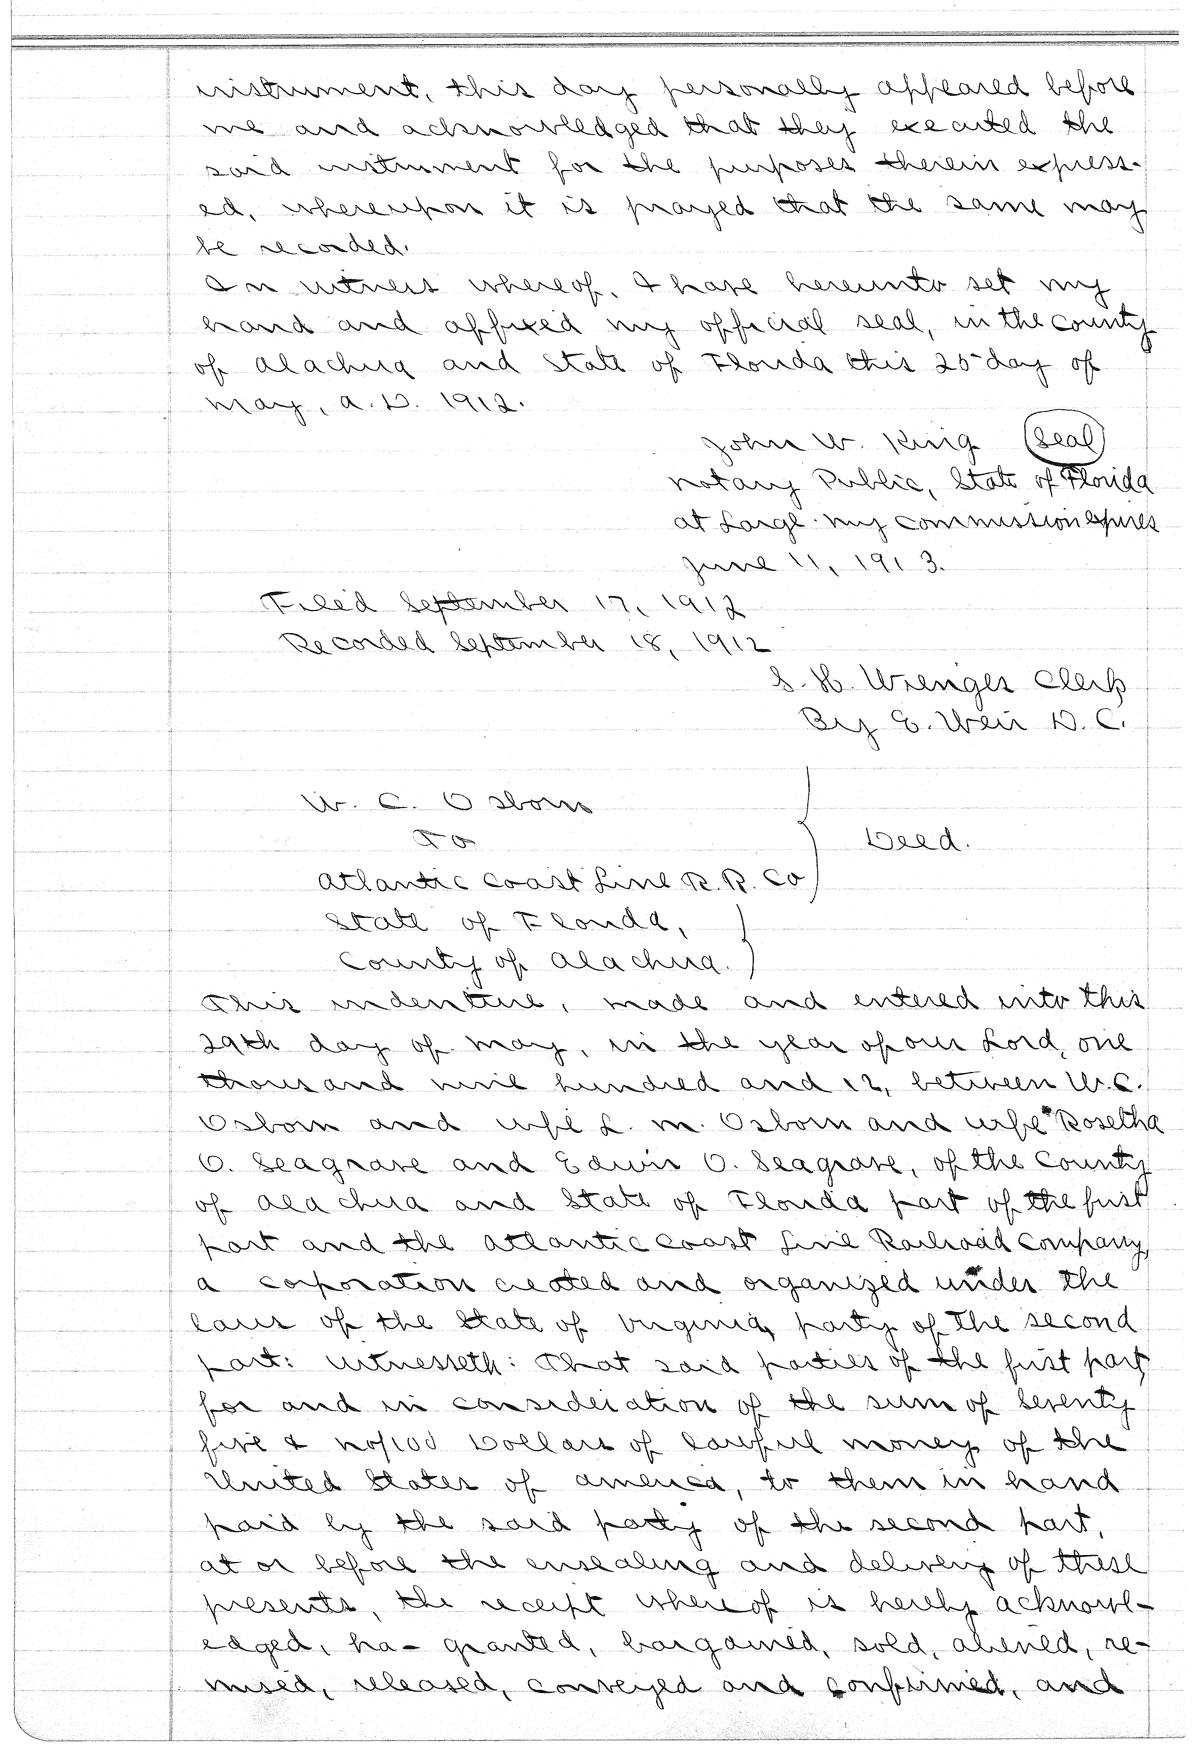 instrument, this day personally appeared before
me and acknowledged that they executed the
said instrument for the purposes therein express-
ed, whereupon it is prayed that the same may
be recorded.
In witness whereof, I have hereunto set my
hand and affixed my official seal, in the county
of Alachua and State of Florida this 25 day of
May, A.D. 1912.
John W. King (Seal)
Notary Public, State of Florida
at Large. My commission expires
June 11, 1913.
Filed September 17, 1912
Recorded September 18, 1912
S. H. Wienges Clerk
By E. Weir D.C.
W. C. Osborn
To
Deed.
Atlantic Coast Line R. R. Co
State of Florida,
County of Alachua.
This indenture, made and entered into this
29th day of May, in the year of our Lord, one
thousand nine hundred and 12, between W. C.
Osborn and wife L. M. Osborn and wife Rosetha
O. Seagrave and Edwin O. Seagrave, of the County
of Alachua and State of Florida part of the first
part and the Atlantic Coast Line Railroad Company,
a corporation created and organized under the
laws of the State of Virginia, party of the second
part: Witnesseth: That said parties of the first part,
for and in consideration of the sum of Seventy
five & no/100 Dollars of lawful money of the
United States of America, to them in hand
paid by the said party of the second part,
at or before the ensealing and delivery of these
presents, the receipt whereof is hereby acknowl-
edged, ha- granted, bargained, sold, aliened, re-
mised, released, conveyed and confirmed, and